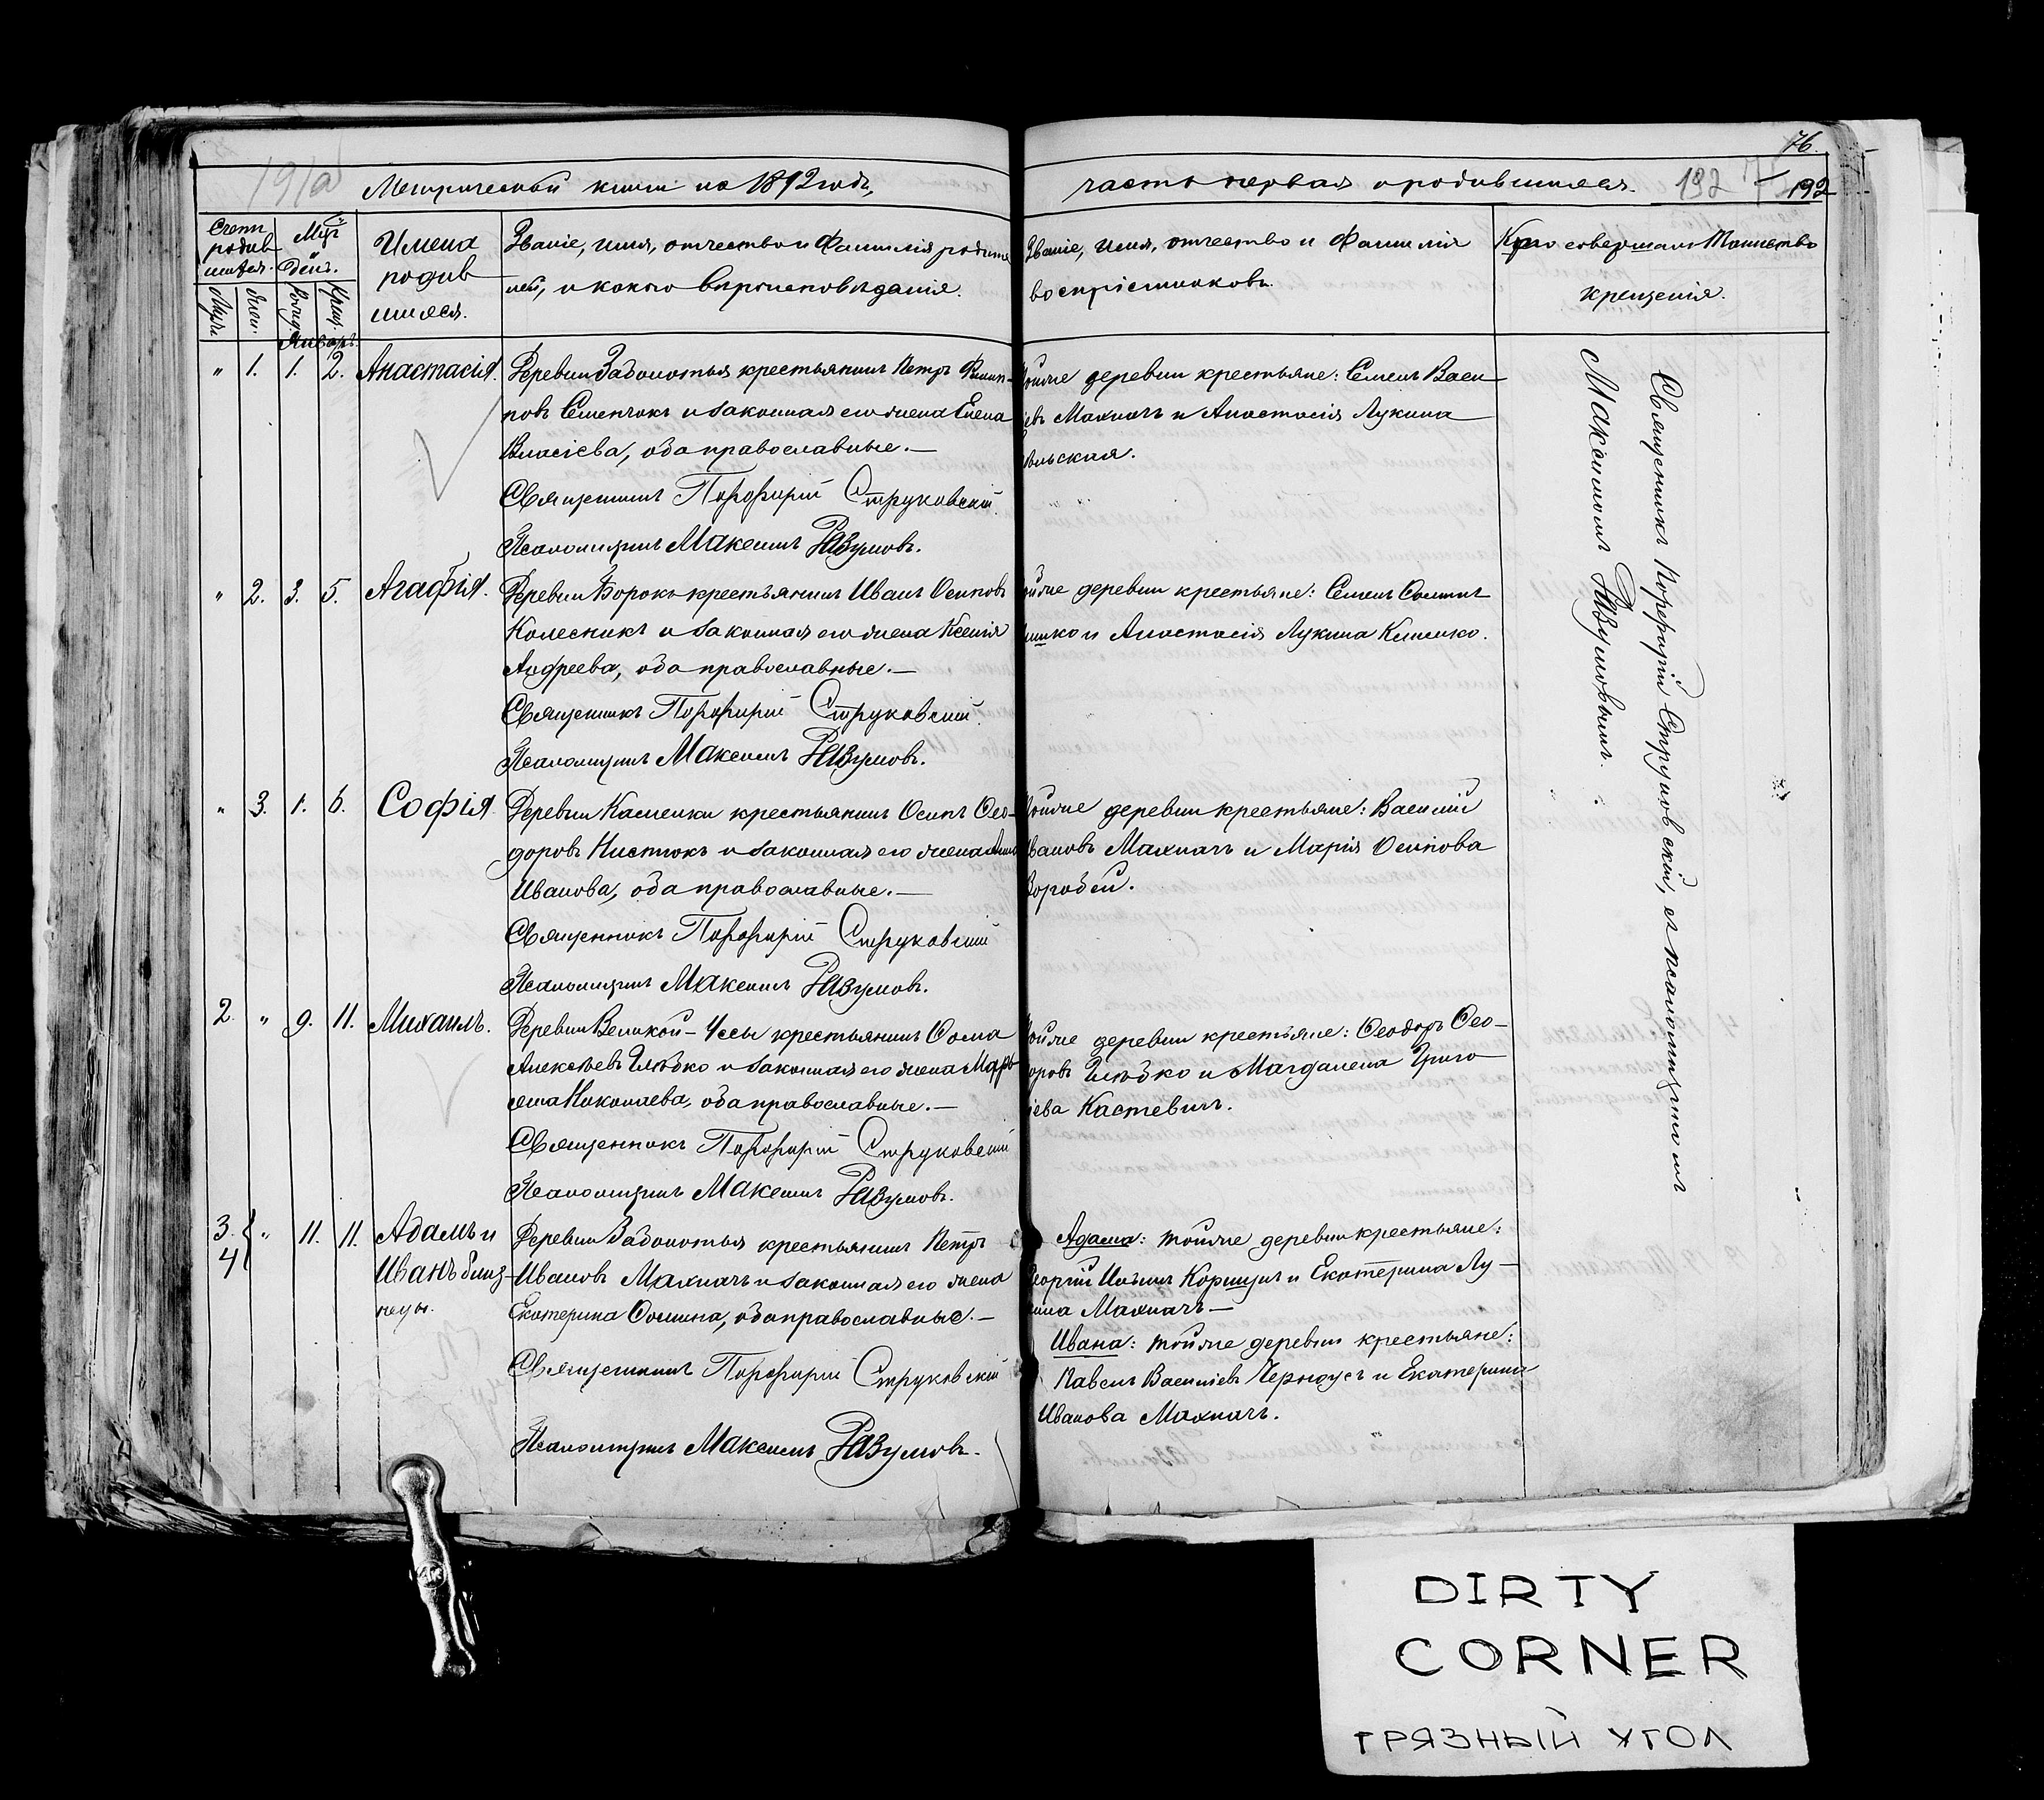 76.
191а Метрической книги на 1892 годъ,
часть первая о родившихся. 192 192
Счетъ родив шихся.
Мцъ и день.
Имена родив шихся.
Званіе, имя, отчество и фамилія родите
лей, и какого вѣроисповѣданія.
Званіе, имя, отчество и фамилія
воспріемниковъ.
Кто совершалъ таинство
крещенія.
Муж. Жен. Рожд. Крещ.
Январь.
" 1. 1. 2. Анастасія.
Деревни Заболотья крестьянинъ Петръ Филип-
повъ Семенчокъ и законная его жена Елена
Власіева, оба православные.—
Священникъ Порфирій Струковскій.
Псаломщикъ Максимъ Разумовъ.
тойже деревни крестьяне: Семенъ Васи
евъ Махначъ и Анастасія Лукина
" 2. 3. 5. Агафія.
Деревни Борокъ крестьянинъ Иванъ Осиповъ
Колесникъ и законная его жена Ксенія
Андреева, оба православные.—
Священникъ Порфирій Струковскій.
Псаломщикъ Максимъ Разумовъ.
тойже деревни крестьяне: Семенъ Ѳоминъ
и Анастасія Лукина Климко.
" 3. 1. 6. Софія
Деревни Каменки крестьянинъ Осипъ Ѳео-
доровъ Нистюкъ и законная его жена Анна
Иванова, оба православные.—
Священникъ Порфирій Струковскій
Псаломщикъ Максимъ Разумовъ.
тойже деревни крестьяне: Василій
Ивановъ Махначъ и Марія Осипова
Воробей.
2. " 9. 11. Михаилъ.
Деревни Великой-Уссы крестьянинъ Ѳома
Алексѣевъ Глѣбко и законная его жена Марь
яна Николаева, оба православные.—
Священникъ Порфирій Струковскій
Псаломщикъ Максимъ Разумовъ.
тойже деревни крестьяне: Ѳеодоръ Ѳео-
доровъ Глѣбко и Магдалена Григо
ьева Кастевичъ.
3. 4 " 11. 11. Адамъ и
Иванъ близ-
нецы.
Деревни Заболотья крестьянинъ Петръ
Ивановъ Махначъ и законная его жена
Екатерина Ѳомина, оба православные.—
Священникъ Порфирій Струковскій
Псаломщикъ Максимъ Разумовъ.
Адама: тойже деревни крестьяне:
Георгій Коршунъ и Екатерина Лу-
кина Махначъ—
Ивана: тойже деревни крестьяне:
Павелъ Василіевъ Черноусъ и Екатерина
Иванова Махначъ.
Священникъ Порфирій Струковскій, съ псаломщикомъ
Максимомъ Разумовымъ.
DIRTY
CORNER
ГРЯЗНЫЙ УГОЛ